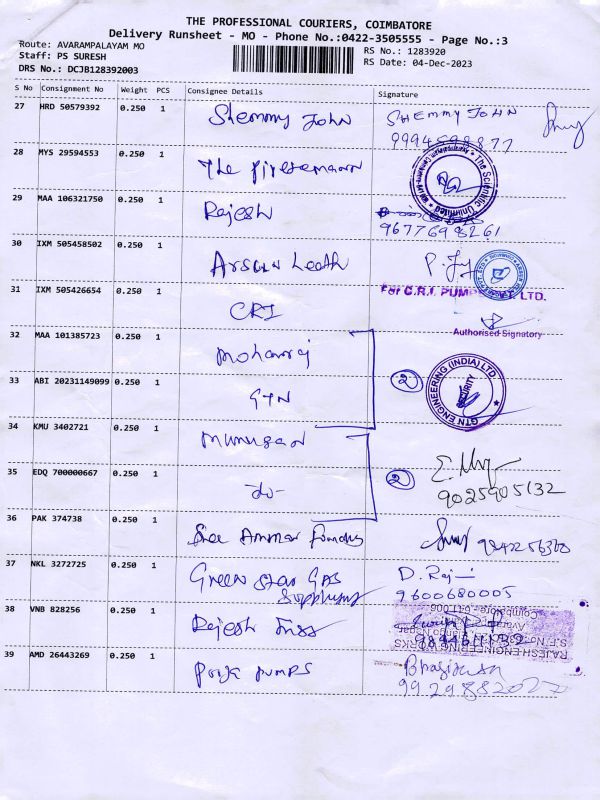 THE PROFESSIONAL COURIERS, COIMBATORE
Delivery Runsheet - MO - Phone No.:0422-3505555 - Page No.:3
Route: AVARAMPALAYAM MO
RS No.: 1283920
Staff: PS SURESH
RS Date: 04-Dec-2023
DRS No.: DCJB128392003
S No Consignment No Weight PCS Consignee Details Signature
27 HRD 50579392 0.250 1 Shemmy John SHEMMY JOHN
28 MYS 29594553 0.250 1 The
The Scientific
29 MAA 106321750 0.250 1 Rajesh
9677698261
30 IXM 505458502 0.250 1
31 IXM 505426654 0.250 1 CRI
For C.R.I. PUMPS LTD.
Authorised Signatory
32 MAA 101385723 0.250 1 Mohanraj
33 ABI 20231149099 0.250 1 GTN 2
GTN ENGINEERING (INDIA) LTD.
SECURITY
34 KMU 3402721 0.250 1 Murugan
35 EDQ 700000667 0.250 1 -do- 2
9025905132
36 PAK 374738 0.250 1 Sree Ammar
37 NKL 3272725 0.250 1 Green Star GAS D. Raji
9600680005
38 VNB 828256 0.250 1 Rajesh
RAJESH ENGINEERING WORKS
Coimbatore - 641 006
39 AMD 26443269 0.250 1 Priya Pumps